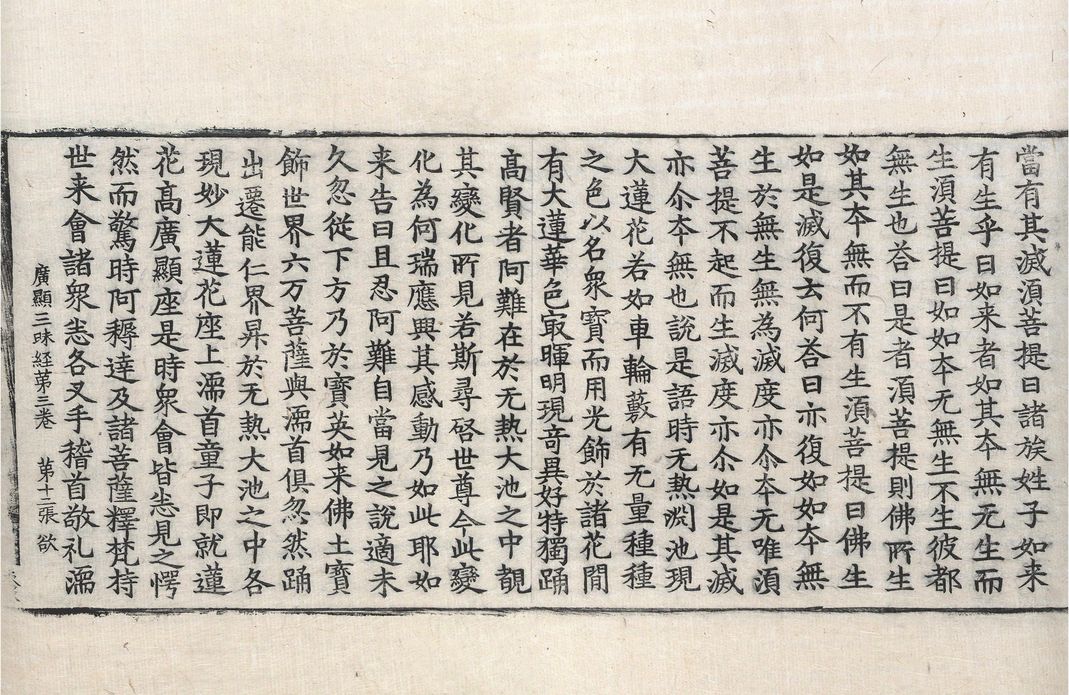 當有其滅湏菩提曰諸族姓子如来
有生乎曰如来者如其夲無无生而
生湏菩提曰如如夲无無生不生彼都
無生也荅曰是者湏菩提則佛所生
如其夲無而不有生湏菩提曰佛生
如是滅復云何荅曰亦復如如夲無
生於無生無為滅度亦尒夲无唯湏
菩提不起而生滅度亦尒如是其滅
亦尒夲無也說是語時无熱渊池現
大蓮花若如車輪藪有无量種種
之色以名衆寶而用光飾於諸花閒
有大蓮華色㝡暉明現竒異好特獨踊
高賢者阿難在於无熱大池之中覩
其變化所見若斯尋啓世尊今此變
化為何瑞應興其感動乃如此耶如
来告曰且忍阿難自當見之說適未
久忽從下方乃於寶英如来佛土寶
飾世界六万菩薩與濡首俱忽然踊
出遷能仁界昇於无熱大池之中各
現妙大蓮花座上濡首童子即就蓮
花高廣顯座是時衆會皆悉見之愕
然而驚時阿耨達及諸菩薩釋梵持
世来會諸衆悉各叉手稽首敬礼濡
廣顯三昧経第三卷 第十二張 欲